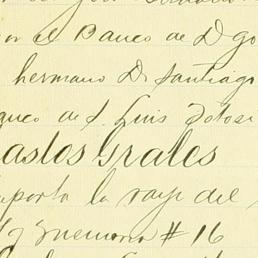 or el Banco de Dgo
hermano D. Santiago
nco de S. Luis Potosi
astos Grales
mporta la raya del
memoria # 16